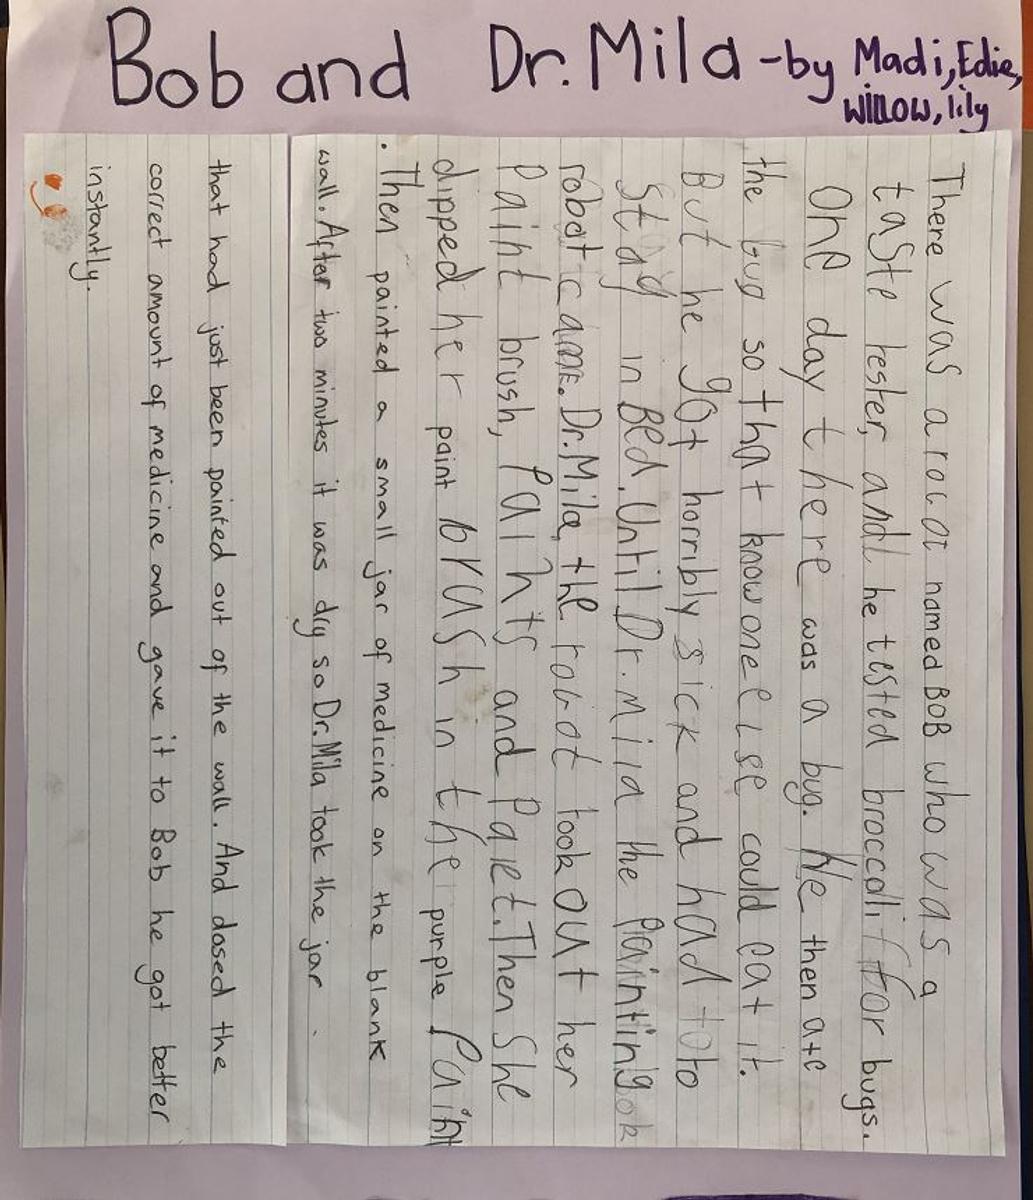 Bob and Dr. Mila -by Madi, Edie,
willow, lily
There was a robot named BOB who was a
taste tester, and he tested broccoli for bugs.
One day there was a bug. He then ate
the bug so that know one else could eat it.
But he got horribly sick and had to to
Stay in Bed. Until Dr. mila the Painting
robot came. Dr. Mila, the robot took out her
Paint brush, Paints and Palet. Then She
dipped her paint brush in the purple Paint
. Then painted a small jar of medicine on the blank
wall. After two minutes it was dry so Dr. Mila took the jar
that had just been painted out of the wall. And dosed the
correct amount of medicine and gave it to Bob he got better
instantly.